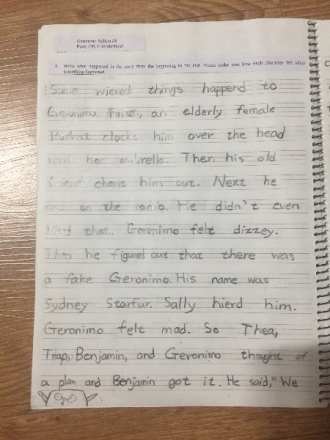 Geronimo Stilton #1
1. Write what happened in the story from the beginning to the end. Please make sure how each character felt when
something happened.
Some wiered things happend to
Geronimo. First, an elderly female
Rodent clocks him over the head
her umbrella. Then his old
chews him out. Next he
on the radio. He didn't even
that. Geronimo felt dizzey.
Then he figured out that there was
a fake Geronimo. His name was
Sydney Starfur. Sally hierd him.
Geronimo felt mad. So Thea,
Trap, Benjamin, and Geronimo thought of
a plan and Benjamin got it. He said, "We